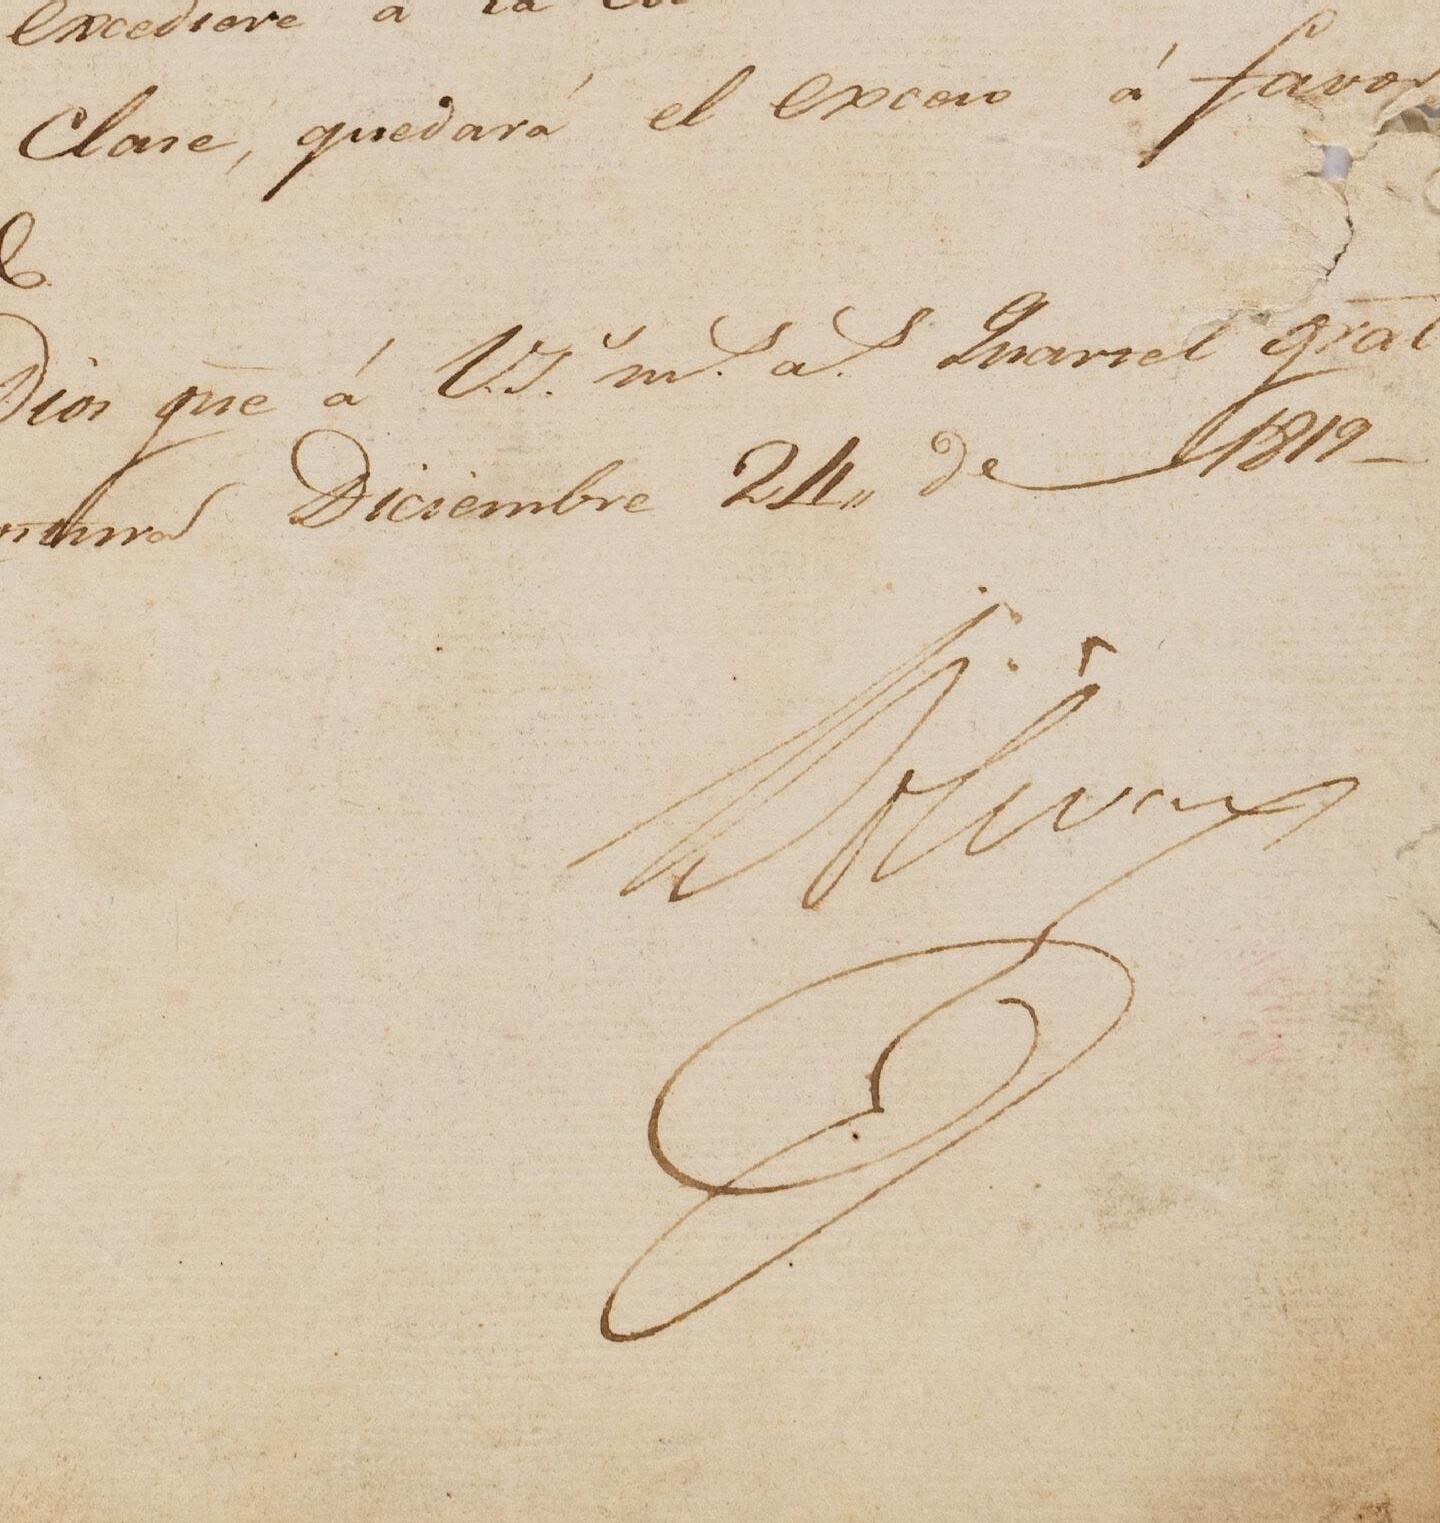 excediere à la
Clase, quedará el exceso á favor
Dios gue á V.S. m.s a.s Quartel gral
Diciembre 24,, de 1819_
Bolivar